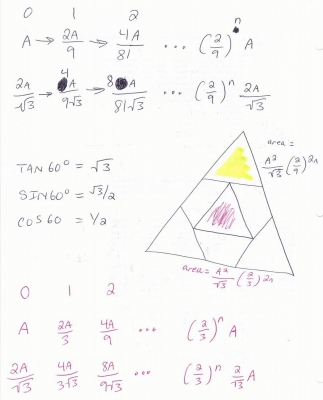 0 1 2
A → 2A/9 → 4A/81 ... (2/9)^n A
2A/√3 → 4A/9√3 → 8A/81√3 ... (2/9)^n 2A/√3
TAN 60° = √3
SIN 60° = √3/2
COS 60 = 1/2
area = A²/√3 (2/9)^2n
area = A²/√3 (2/3)^2n
0 1 2
A 2A/3 4A/9 ... (2/3)^n A
2A/√3 4A/3√3 8A/9√3 ... (2/3)^n 2/√3 A